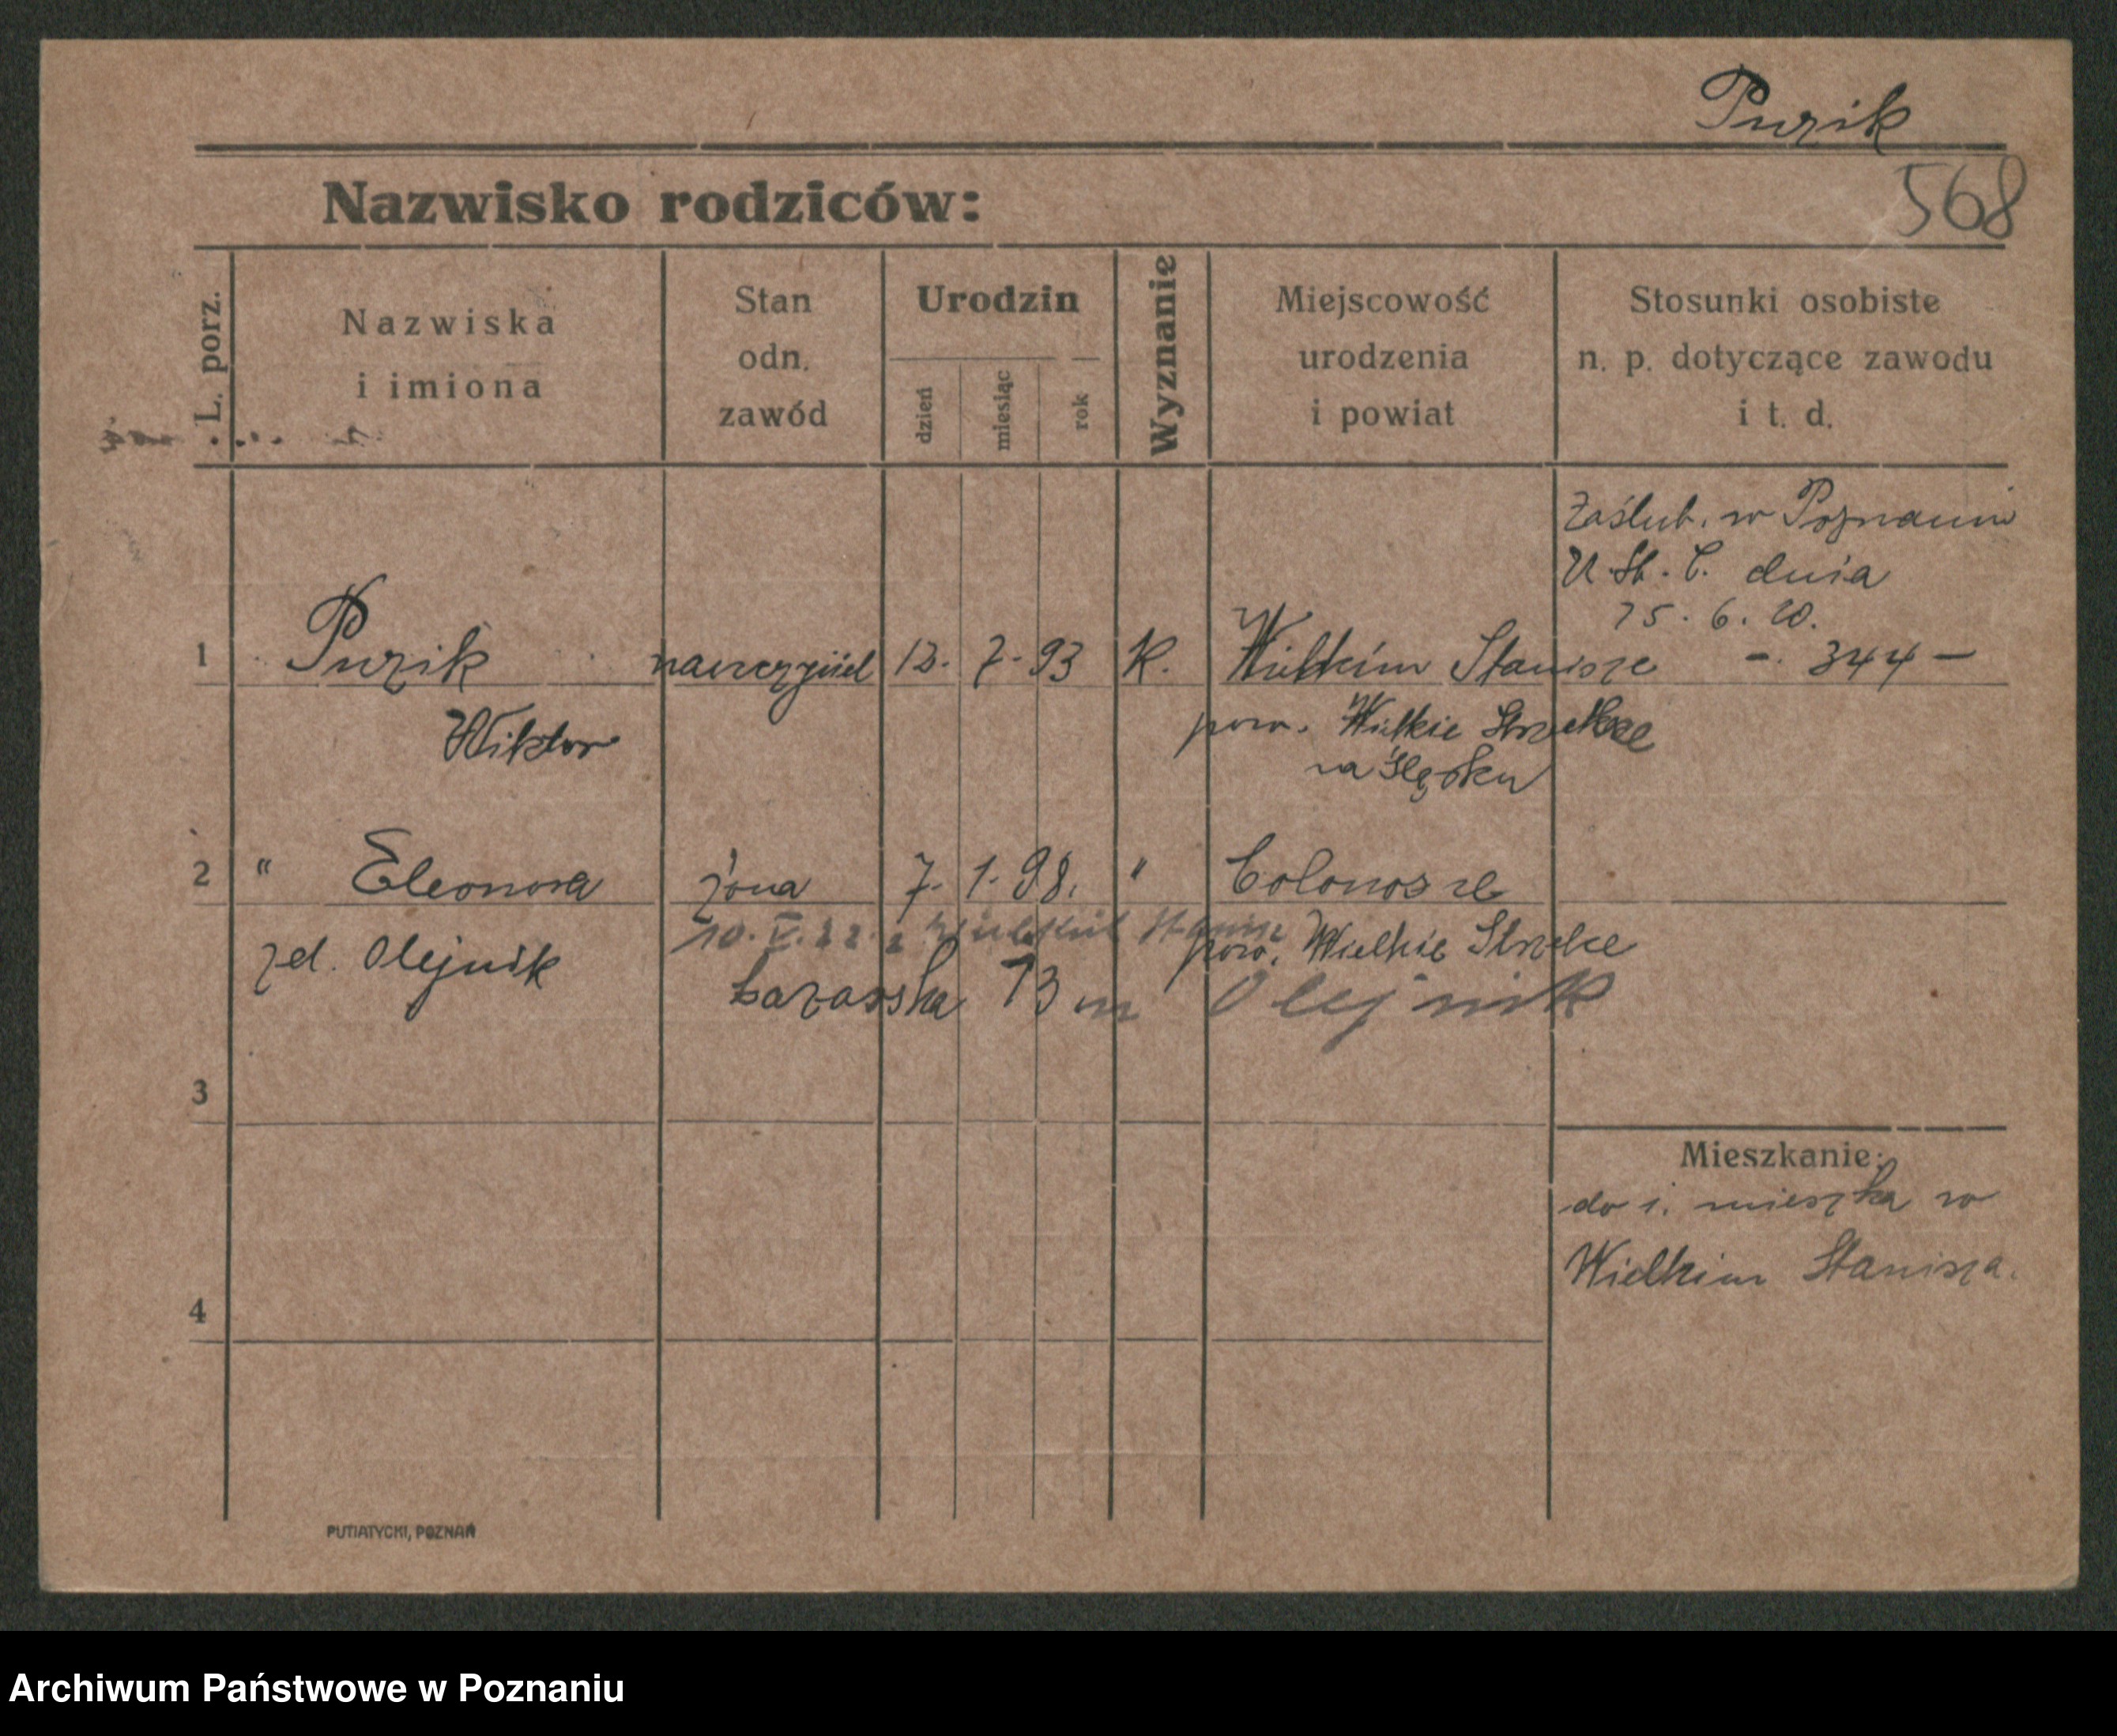 Purik
568
Nazwisko rodziców:
L. porz.
Nazwiska
i imiona
Stan
odn.
zawód
Urodzin
dzień
miesiąc
rok
Wyznanie
Miejscowość
urodzenia
i powiat
Stosunki osobiste
n. p. dotyczące zawodu
i t. d.
Zaślub. w Poznaniu
U. St. C. dnia
15. 6. 20.
- 344 -
1 Purik nauczyciel 13. 7. 93 K. Wielkim Stanisze
Wiktor
pow. Wielkie Strzelce
na Śląsku
2 " Eleonora żona 7. 1. 98. " Colonosze
zd. Olejnik
pow. Wielkie Strzelce
10. V. 22. z Stanisz
13 m Olejnik
3
Mieszkanie:
do i. mieszka w
Wielkim Stanisza.
4
PUTIATYCKI, POZNAŃ
Archiwum Państwowe w Poznaniu